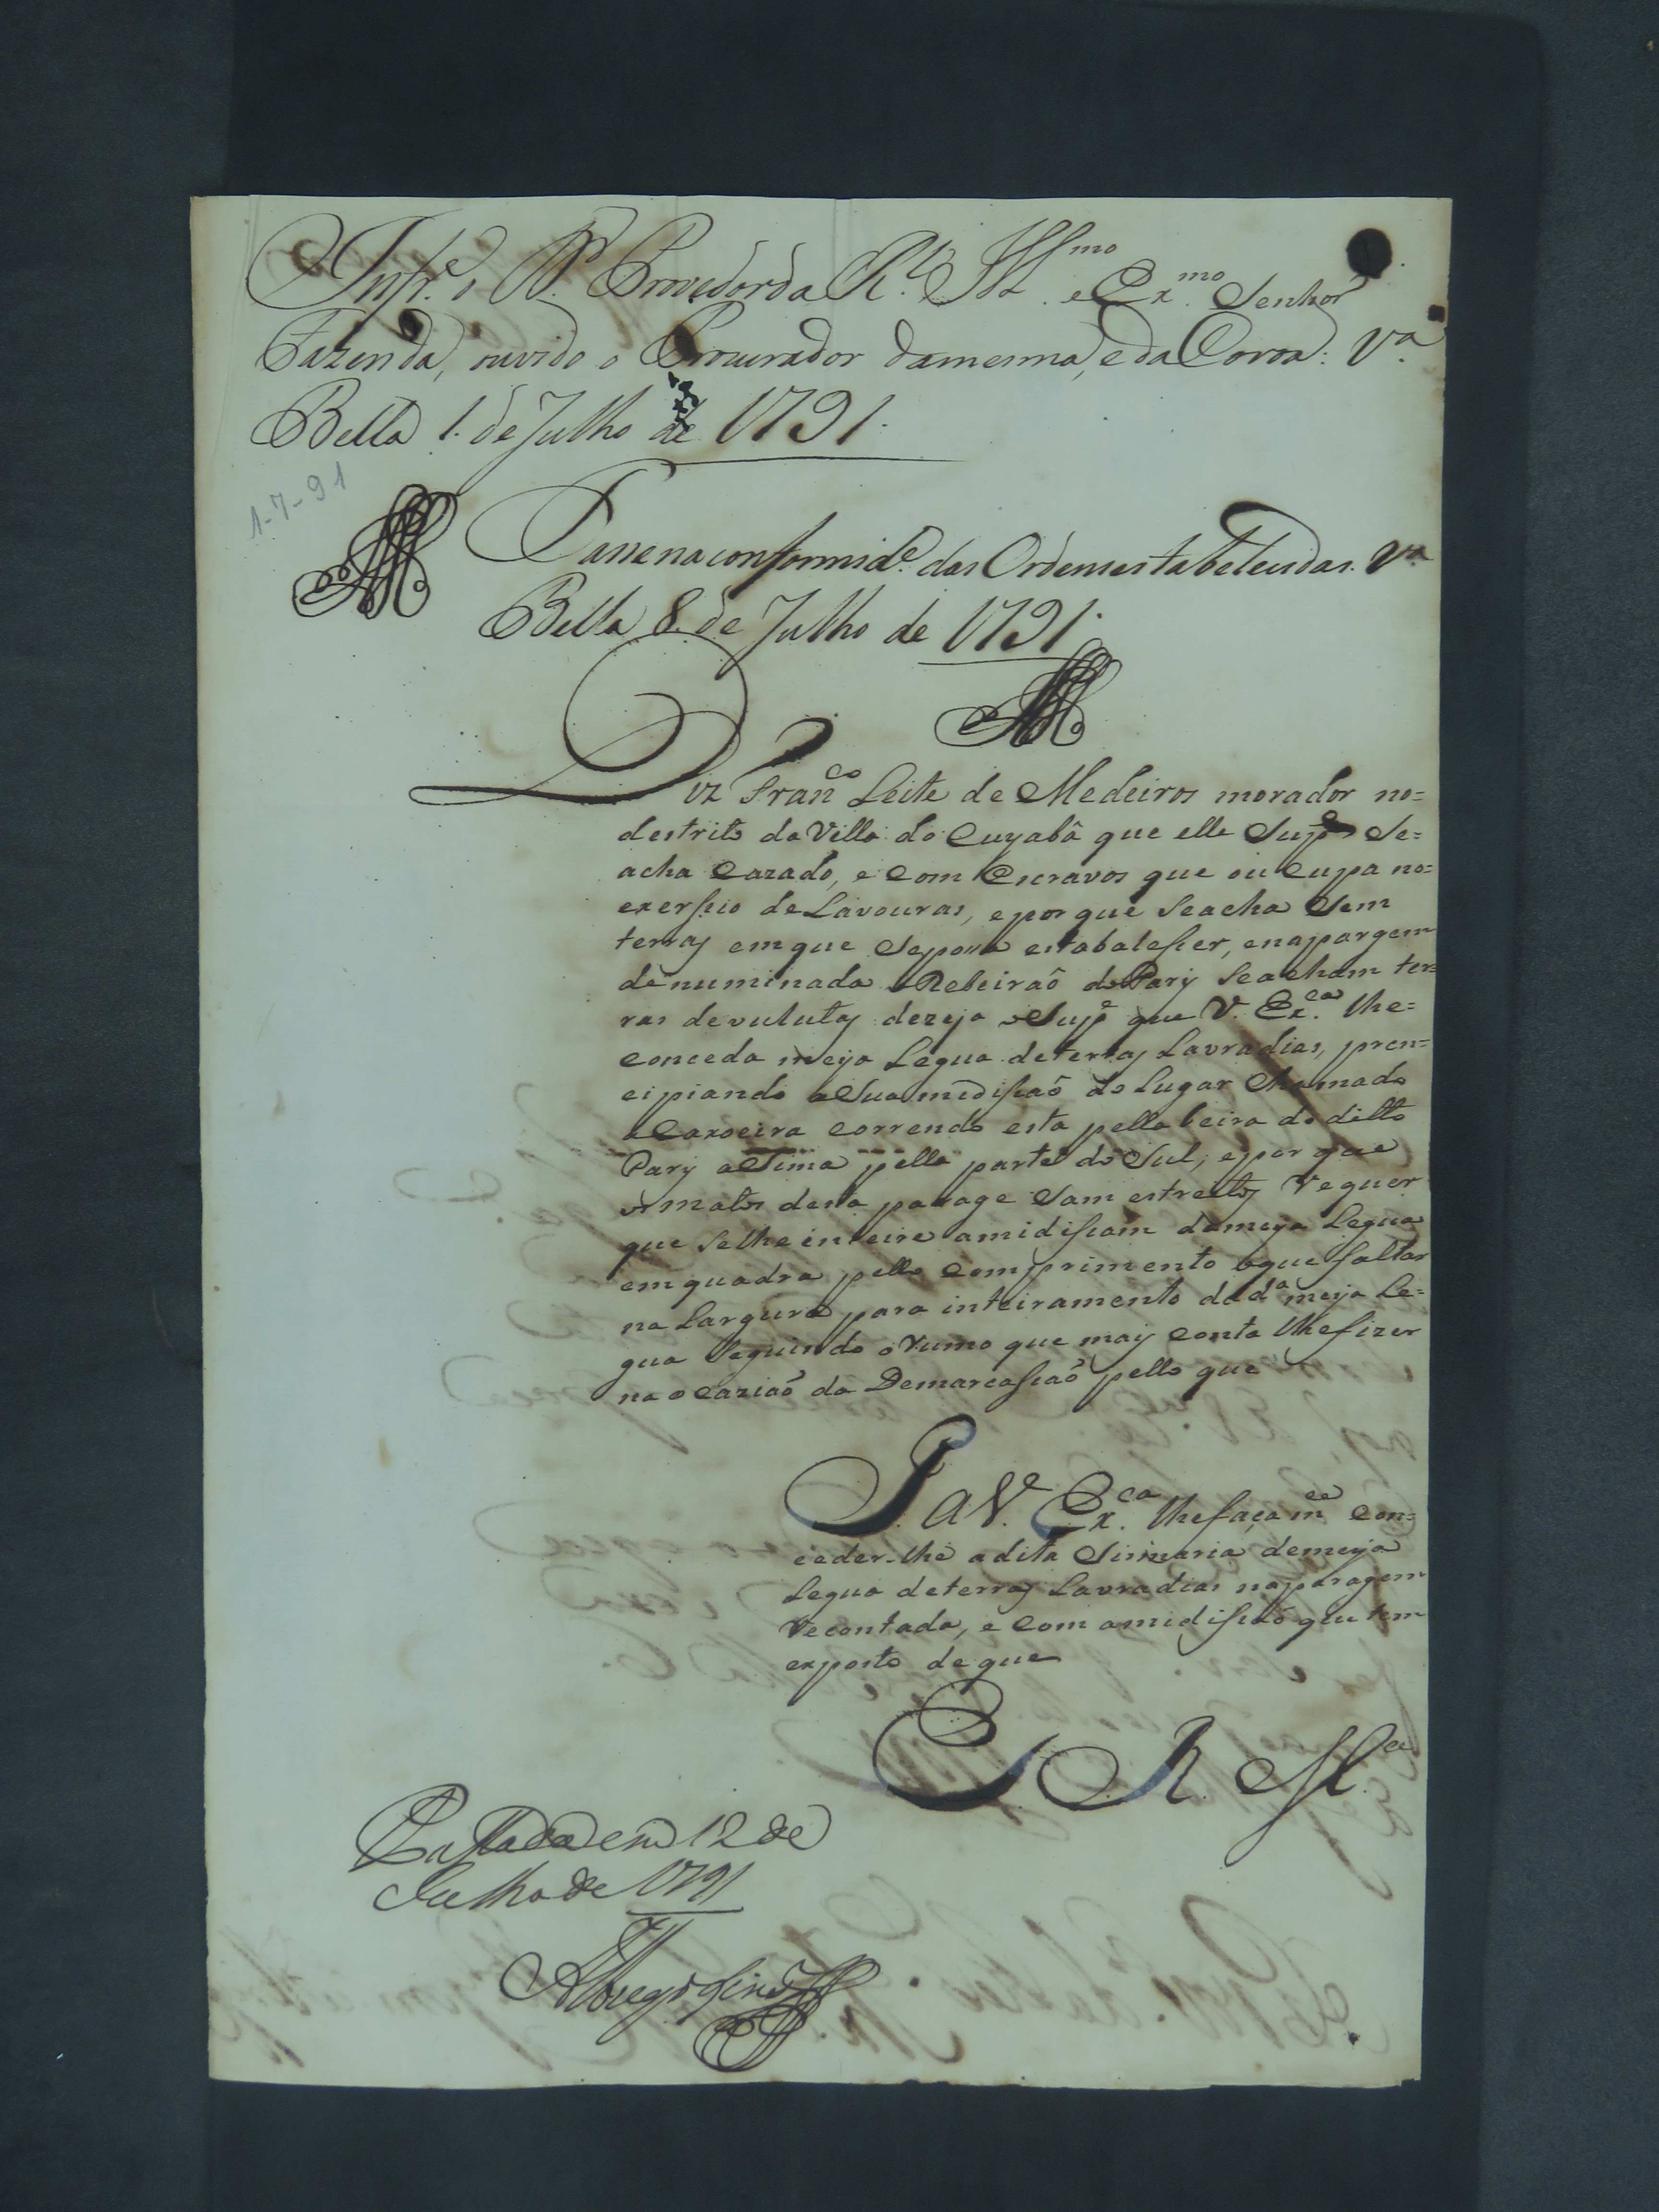 Inf.e o D.r Provedor da R.l Ill.mo e Ex.mo Senhor
Fazenda, ouvido o Procurador da mesma, e da Coroa: V.a
Bella 1. de Julho de 1791.
1-7-91
Passe na conformid.e das Ordens estabelecidas. V.a
Bella 8. de Julho de 1791.
Diz Fran.co Leite de Medeiros morador no=
destrito da Villa do Cuyabâ que elle Sup.e Se=
acha Cazado, e Com Escravos que ou Cupa no=
exersicio de Lavouras, epor que Seacha Sem
terras emque Sepossa estabalesser, enapargem
denuminada Rebeiraõ do Pary Seacham ter=
ras devulutas dezeja o Sup.e que V. Ex.ca lhe=
conceda meya Legua deterras Lavradias, pren=
cipiando aSua midissaõ do Lugar Chamado
a Caxoeira correndo esta pella beira do ditto
Pary aSima pella parte do Sul, epor que
os matos desta passage Sam estreitos Requer
que Selhe inteire amidissam dameya Legua
emquadra pello Comprimento oque faltar
na Largura para inteiramento da d.a meya Le=
gua Seguindo o Rumo que mais Conta lhefizer
na oCaziaõ da Demarcassaõ pello que
P. a V. Ex.ca lhefaça m.ce Con=
ceder-lhe adita Sismaria demeya
Legua deterras Lavradias naparagem
Recontada, e Com amidissaõ que tem
exposto de que
E. R. M.ce
Passada em 12 de
Julho de 1791